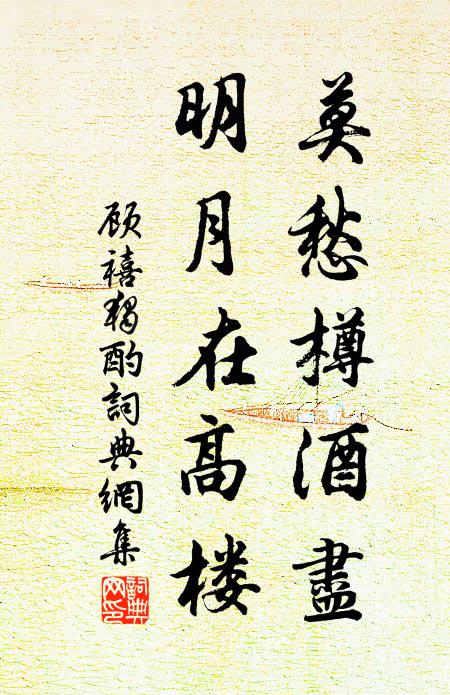 莫愁樽酒盡
明月在高楼
顾禧獨酌詞典網集
詞典网印